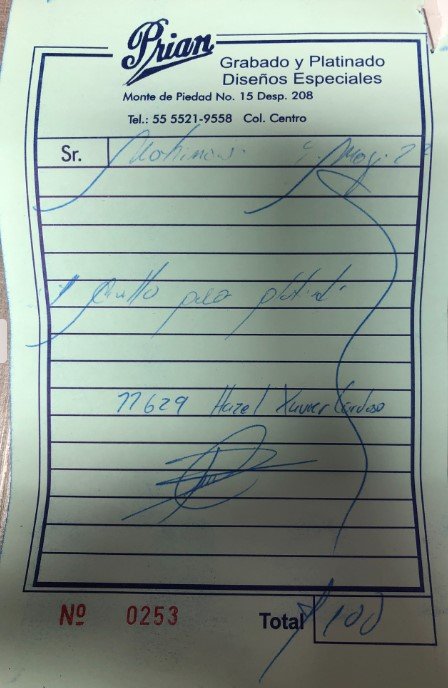 Prian
Grabado y Platinado
Diseños Especiales
Monte de Piedad No. 15 Desp. 208
Tel.: 55 5521-9558 Col. Centro
Sr.
1 para
77629 Hazel Xavier Cardoso
Nº 0253 Total $100